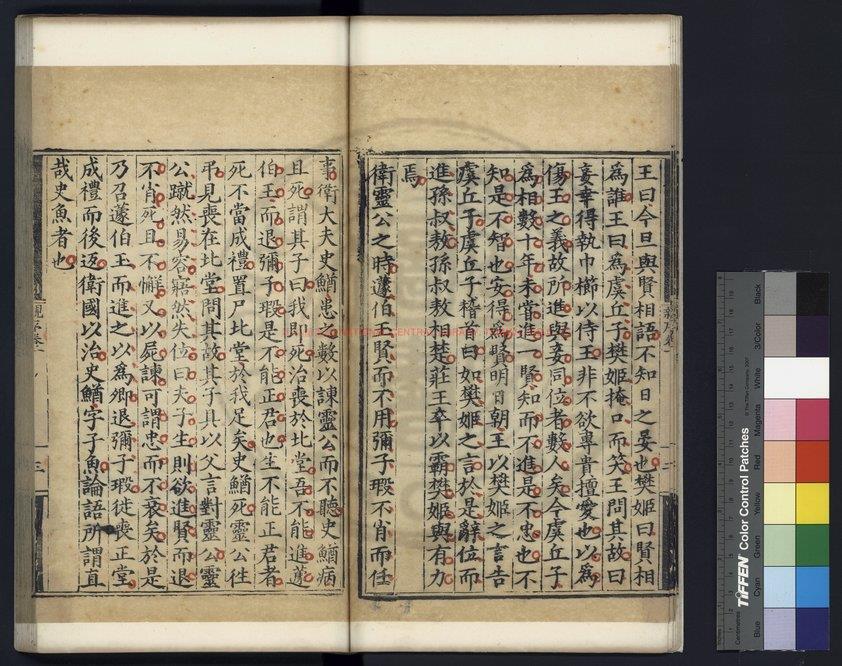 王曰今旦與賢相語不知日之晏也樊姬曰賢相
爲誰王曰爲虞丘子樊姬掩口而笑王問其故曰
妾幸得執巾櫛以侍王非不欲專貴擅愛也以爲
傷王之義故所進與妾同位者數人矣今虞丘子
爲相數十年未嘗進一賢知而不進是不忠也不
知是不智也安得爲賢明日朝王以樊姬之言告
虞丘子虞丘子稽首曰如樊姬之言於是辭位而
進孫叔敖孫叔敖相楚莊王卒以霸樊姬與有力
焉
衛靈公之時蘧伯玉賢而不用彌子瑕不肖而任
事衛大夫史鰌患之數以諫靈公而不聽史鰌病
且死謂其子曰我即死治喪於北堂吾不能進蘧
伯玉而退彌子瑕是不能正君也生不能正君者
死不當成禮置尸北堂於我足矣史鰌死靈公徃
弔見喪在北堂問其故其子具以父言對靈公靈
公蹴然易容寤然失位曰夫子生則欲進賢而退
不肖死且不懈又以屍諫可謂忠而不衰矣於是
乃召蘧伯玉而進之以爲卿退彌子瑕徙喪正堂
成禮而後返衛國以治史鰌字子魚論語所謂直
哉史魚者也
Centimetres
TIFFEN Color Control Patches
© The Tiffen Company, 2007
Blue
Cyan
Green
Yellow
Red
Magenta
White
3/Color
Black